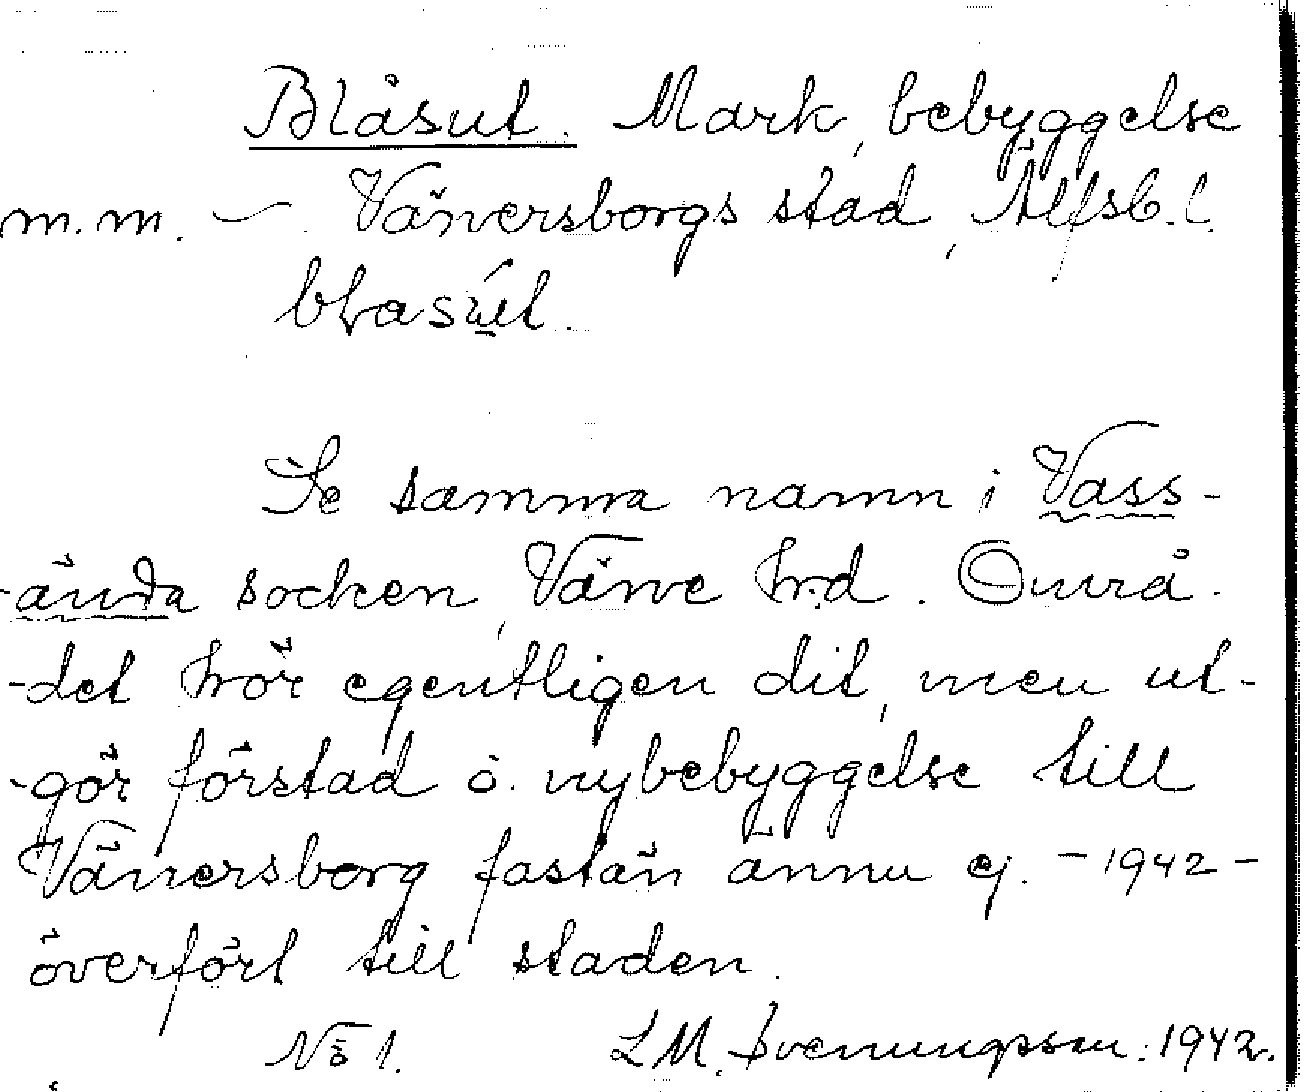 Blåsut. Mark, bebyggelse
m.m. — Vänersborgs stad, Älfsb. l.
Se samma namn i Vass-
-ända socken, Väne hrd. Områ-
-det hör egentligen dit, men ut-
-gör förstad o. nybebyggelse till
Vänersborg fastän ännu ej. - 1942 -
överfört till staden.
No 1. L.M. Svenungsson. 1942.